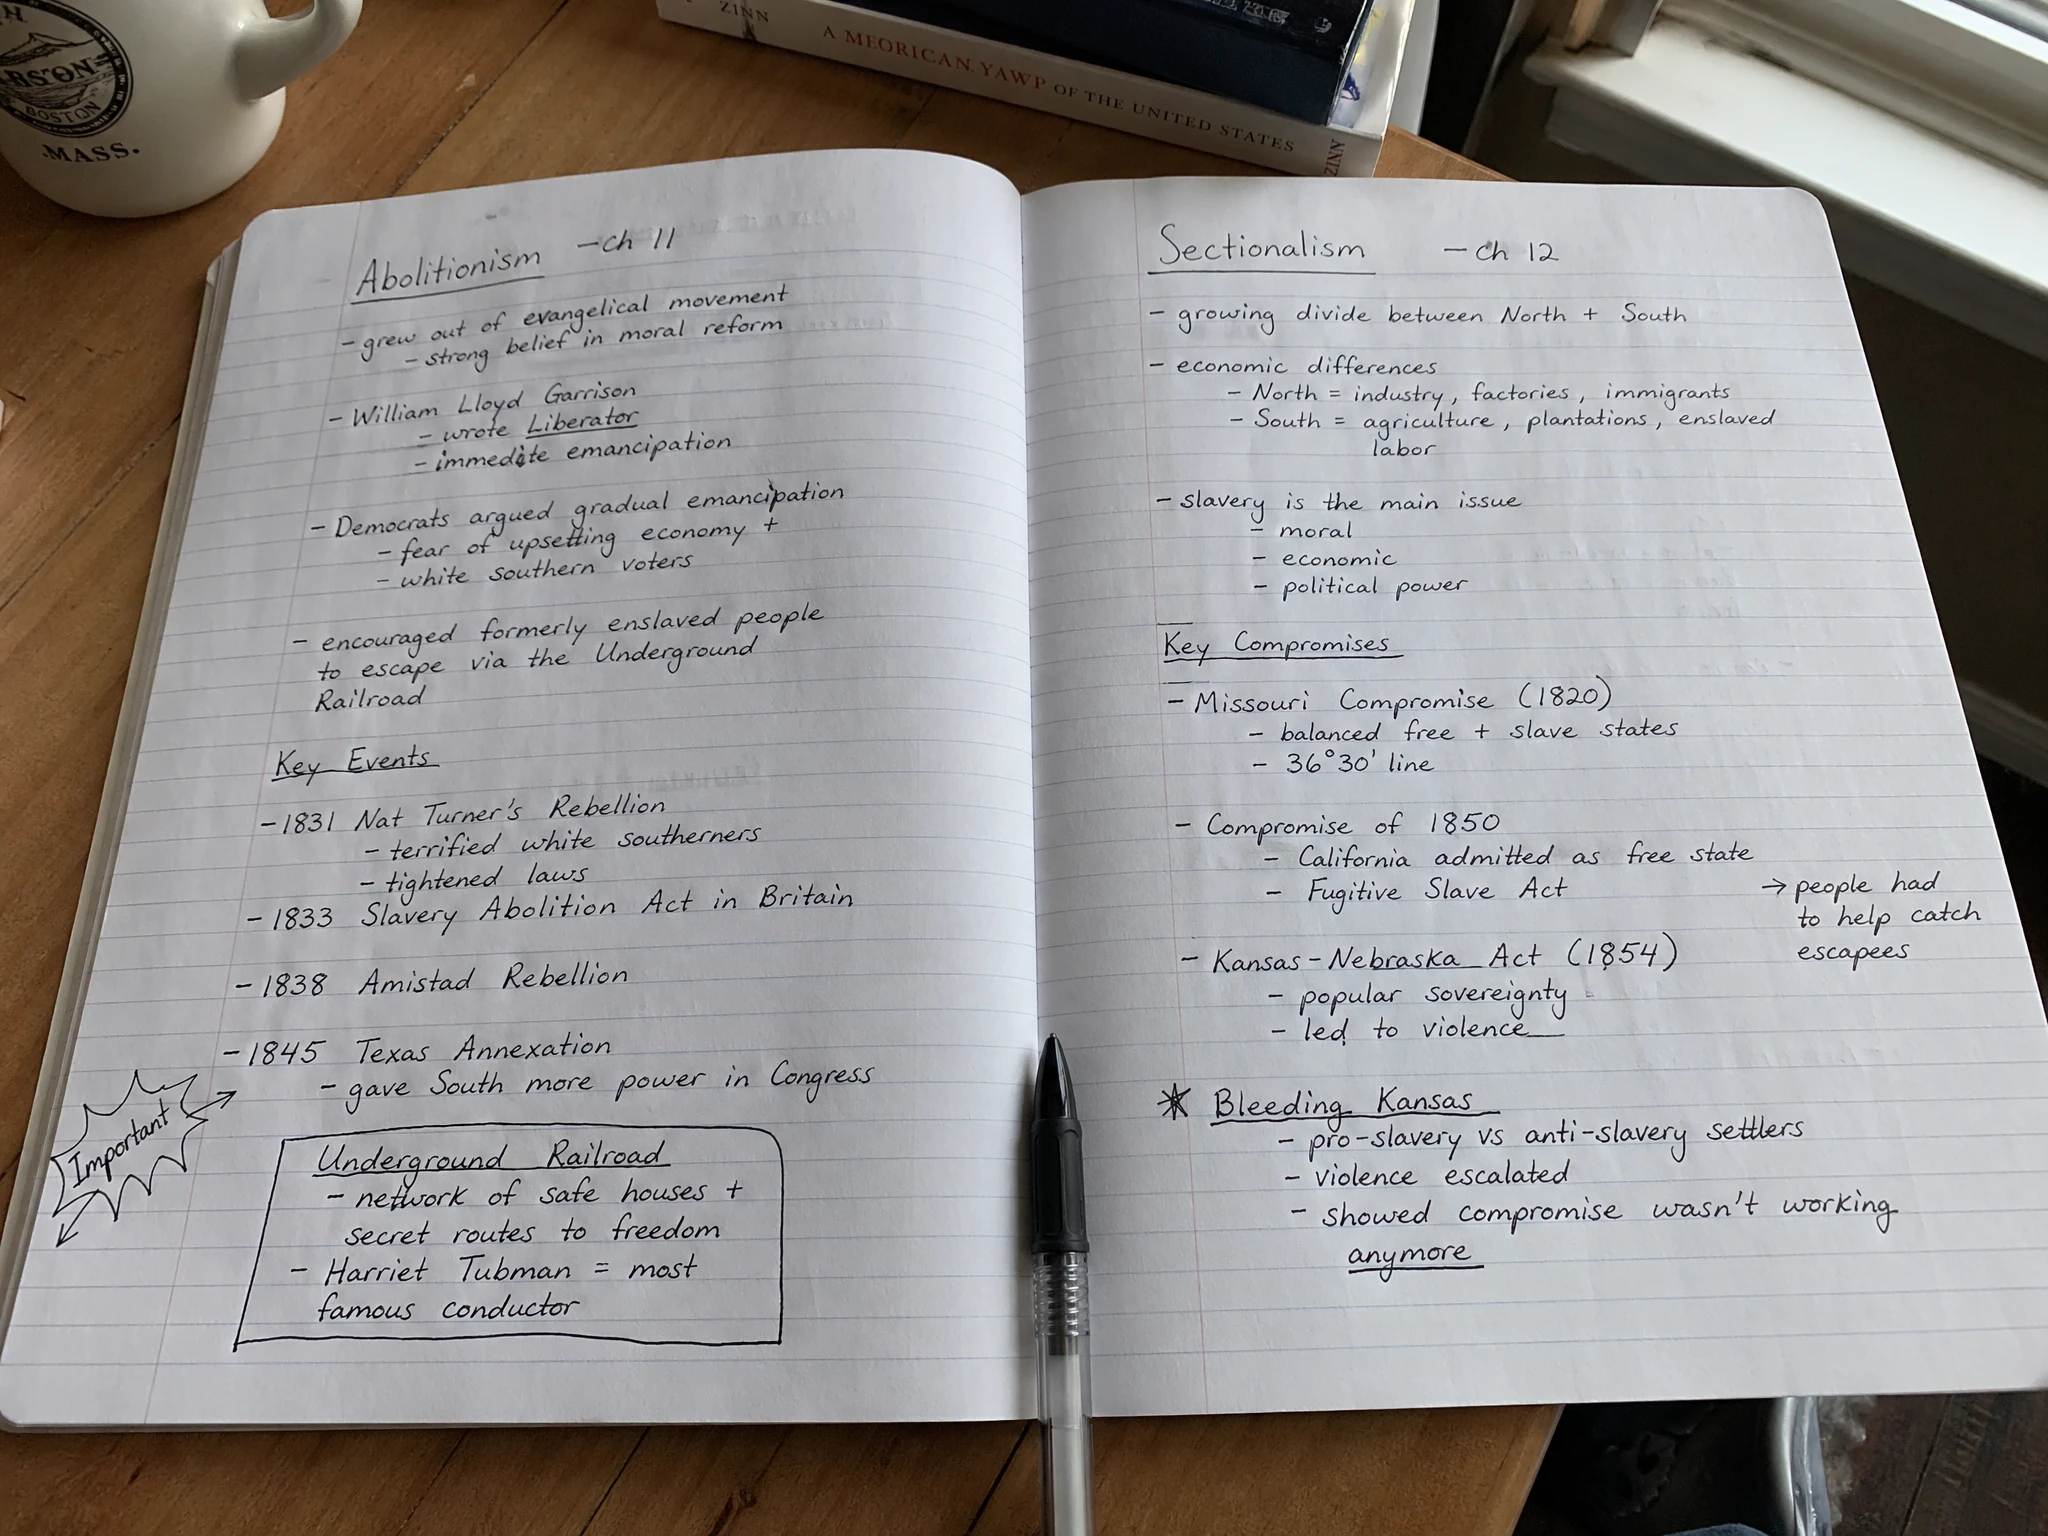 BOSTON
.MASS.
ZINN
A MEORICAN YAWP OF THE UNITED STATES
ZINN
Abolitionism - ch 11
- grew out of evangelical movement
- strong belief in moral reform
- William Lloyd Garrison
- wrote Liberator
- immediate emancipation
- Democrats argued gradual emancipation
- fear of upsetting economy +
- white southern voters
- encouraged formerly enslaved people
to escape via the Underground
Railroad
Key Events
- 1831 Nat Turner's Rebellion
- terrified white southerners
- tightened laws
- 1833 Slavery Abolition Act in Britain
- 1838 Amistad Rebellion
- 1845 Texas Annexation
- gave South more power in Congress
Important
Underground Railroad
- network of safe houses +
secret routes to freedom
- Harriet Tubman = most
famous conductor
Sectionalism - ch 12
- growing divide between North + South
- economic differences
- North = industry, factories, immigrants
- South = agriculture, plantations, enslaved
labor
- slavery is the main issue
- moral
- economic
- political power
Key Compromises
- Missouri Compromise (1820)
- balanced free + slave states
- 36°30' line
- Compromise of 1850
- California admitted as free state
- Fugitive Slave Act
→ people had
to help catch
escapees
- Kansas-Nebraska Act (1854)
- popular sovereignty
- led to violence
* Bleeding Kansas
- pro-slavery vs anti-slavery settlers
- violence escalated
- showed compromise wasn't working
anymore